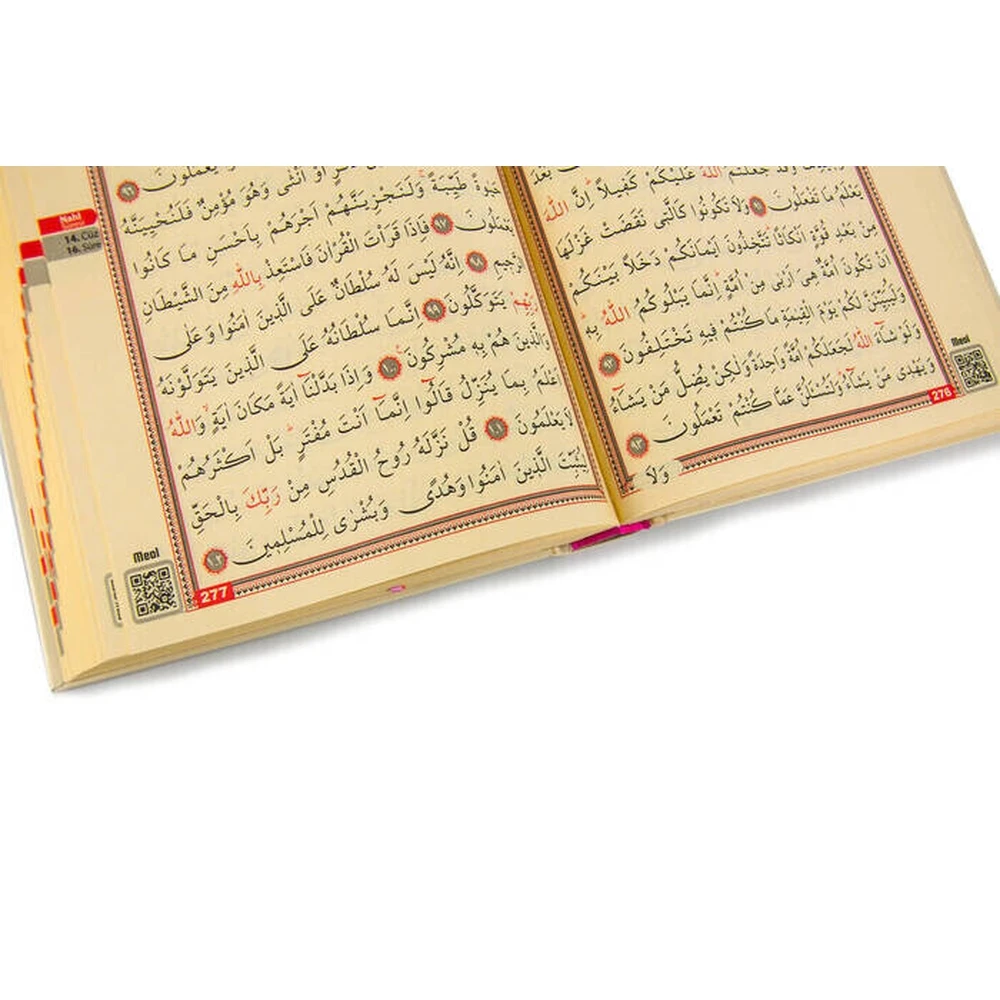 عَلَيْكُمْ كَفِيلاً اِنَّ اللّٰهَ
يَعْلَمُ مَا تَفْعَلُونَ ﴿٩١﴾ وَلَا تَكُونُوا كَالَّتِى نَقَضَتْ غَزْلَهَا
مِنْ بَعْدِ قُوَّةٍ اَنْكَاثًا تَتَّخِذُونَ اَيْمَانَكُمْ دَخَلاً بَيْنَكُمْ
اَنْ تَكُونَ اُمَّةٌ هِىَ اَرْبٰى مِنْ اُمَّةٍ اِنَّمَا يَبْلُوكُمُ اللّٰهُ بِهٖ
وَلَيُبَيِّنَنَّ لَكُمْ يَوْمَ الْقِيٰمَةِ مَا كُنْتُمْ فِيهِ تَخْتَلِفُونَ ﴿٩٢﴾
وَلَوْ شَاۤءَ اللّٰهُ لَجَعَلَكُمْ اُمَّةً وَاحِدَةً وَلٰكِنْ يُضِلُّ مَنْ يَشَاۤءُ
وَيَهْدِى مَنْ يَشَاۤءُ وَلَتُسْـَٔلُنَّ عَمَّا كُنْتُمْ تَعْمَلُونَ ﴿٩٣﴾
وَلَا
276
Meal
يَعْمَلُونَ ﴿٩٦﴾
اَوْ اُنْثٰى وَهُوَ مُؤْمِنٌ فَلَنُحْيِيَنَّهُ
حَيٰوةً طَيِّبَةً وَلَنَجْزِيَنَّهُمْ اَجْرَهُمْ بِاَحْسَنِ مَا كَانُوا
يَعْمَلُونَ ﴿٩٧﴾ فَاِذَا قَرَاْتَ الْقُرْاٰنَ فَاسْتَعِذْ بِاللّٰهِ مِنَ الشَّيْطَانِ
الرَّجِيمِ ﴿٩٨﴾ اِنَّهُ لَيْسَ لَهُ سُلْطَانٌ عَلَى الَّذِينَ اٰمَنُوا وَعَلٰى
رَبِّهِمْ يَتَوَكَّلُونَ ﴿٩٩﴾ اِنَّمَا سُلْطَانُهُ عَلَى الَّذِينَ يَتَوَلَّوْنَهُ
وَالَّذِينَ هُمْ بِهٖ مُشْرِكُونَ ﴿١٠٠﴾ وَاِذَا بَدَّلْنَاۤ اٰيَةً مَكَانَ اٰيَةٍ وَاللّٰهُ
اَعْلَمُ بِمَا يُنَزِّلُ قَالُوۤا اِنَّمَاۤ اَنْتَ مُفْتَرٍ بَلْ اَكْثَرُهُمْ
لَا يَعْلَمُونَ ﴿١٠١﴾ قُلْ نَزَّلَهُ رُوحُ الْقُدُسِ مِنْ رَبِّكَ بِالْحَقِّ
لِيُثَبِّتَ الَّذِينَ اٰمَنُوا وَهُدًى وَبُشْرٰى لِلْمُسْلِمِينَ ﴿١٠٢﴾
277
Meal
Nahl
14. Cüz
16. Sûre